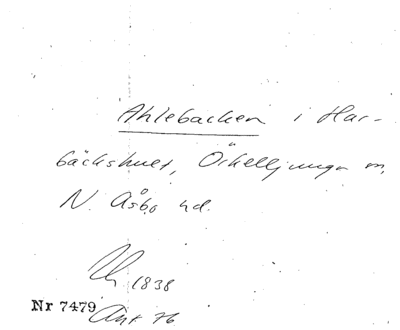 Ahlebacken i Har-
bäckshult, Örkelljunga sn,
N. Åsbo hd.
1838
Nr 7479
Ant 76